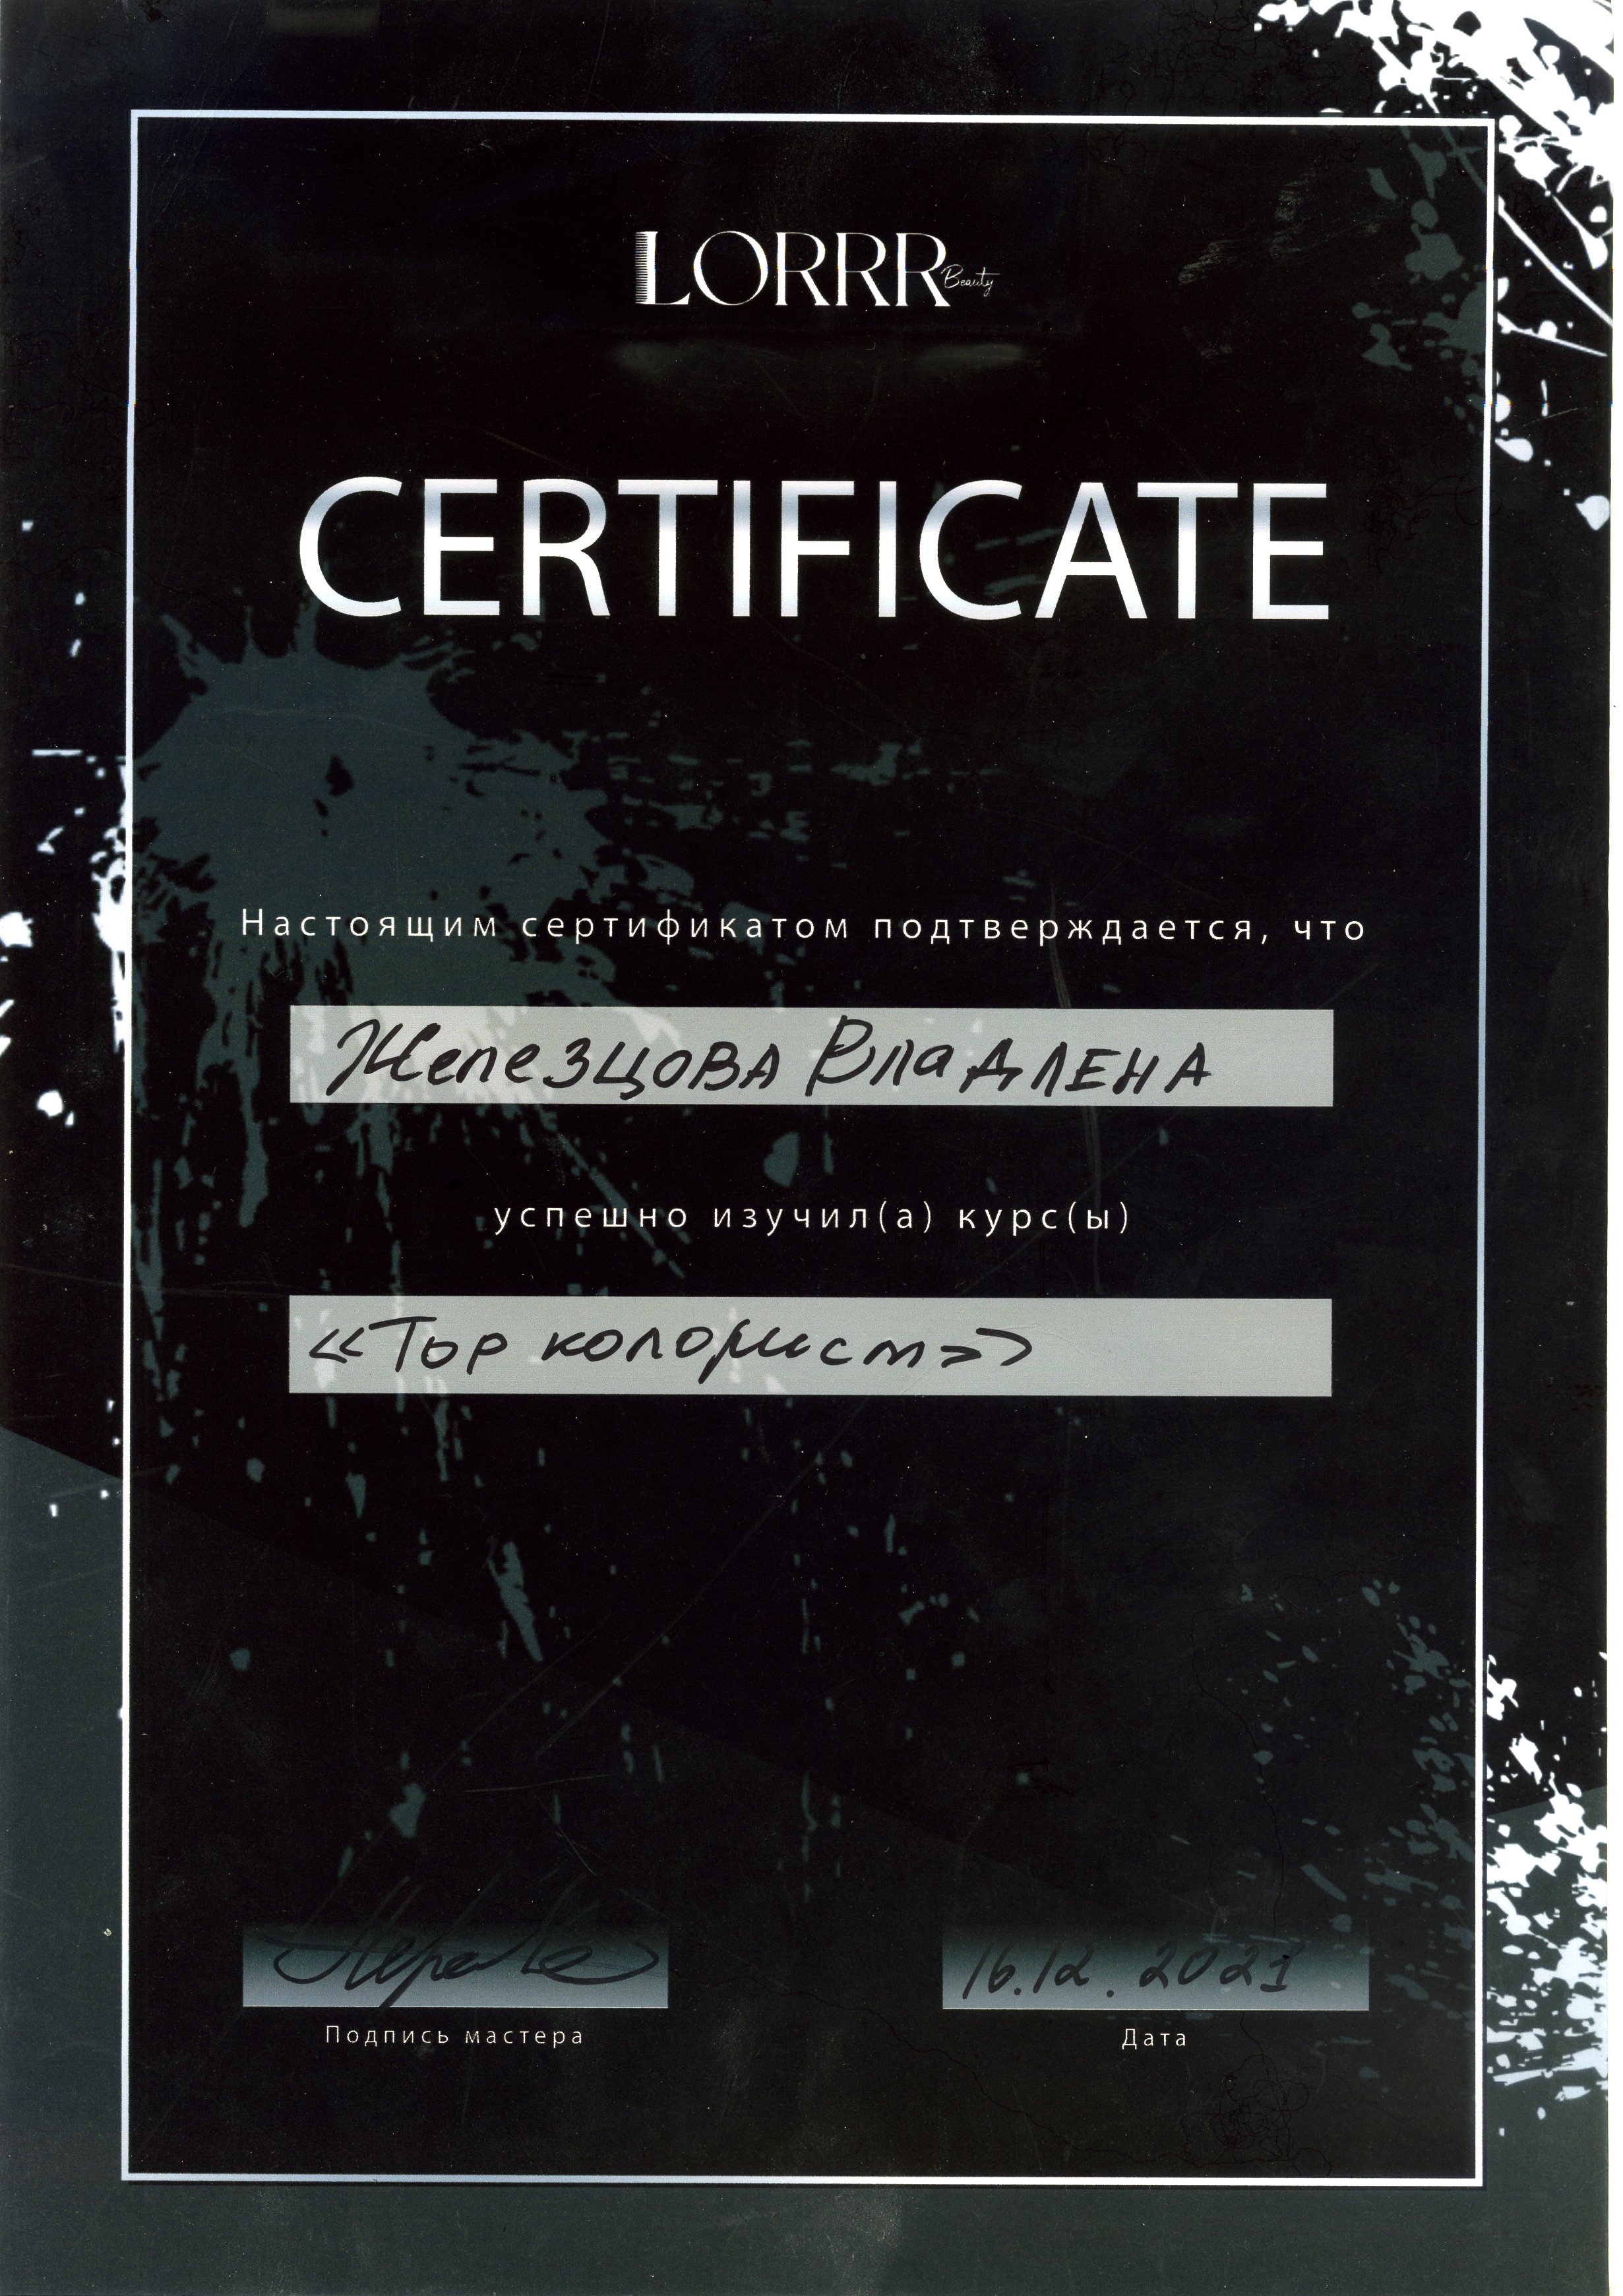 LORRR Beauty
CERTIFICATE
Настоящим сертификатом подтверждается, что
Железцова Владлена
успешно изучил(а) курс(ы)
«Top колорист»
16.12.2021
Подпись мастера
Дата